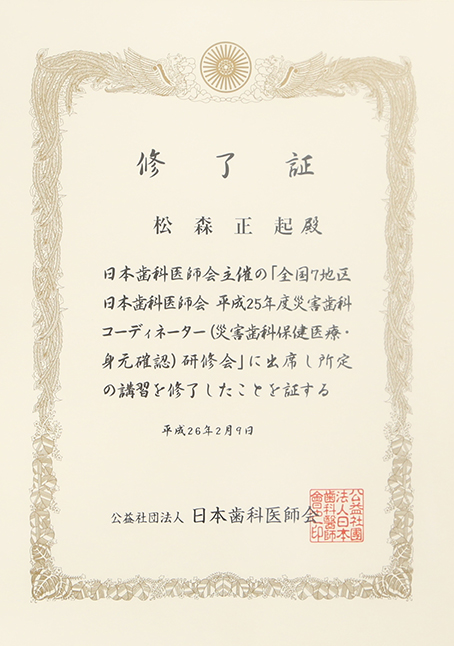 修了証
松森正起殿
日本歯科医師会主催の「全国7地区
日本歯科医師会 平成25年度災害歯科
コーディネーター(災害歯科保健医療・
身元確認)研修会」に出席し所定
の講習を修了したことを証する
平成26年2月9日
公益社団法人 日本歯科医師会
公益社團
法人日本
歯科醫師
會之印